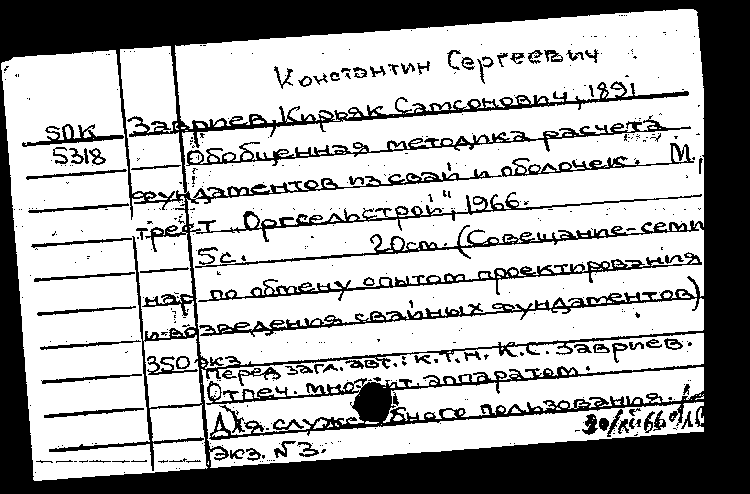 Константин Сергеевич
Завриев, Кирьяк Самсонович, 1891
SПК
5318
Обобщенная методика расчета
фундаментов из свай и оболочек. М.,
трест "Оргсельстрой", 1966.
5с. 20ст. (Совещание-семи
нар по обмену опытом проектирования
и возведения свайных фундаментов)
350 экз.
Перед загл. авт.: к.т.н. К.С. Завриев.
Отпеч. аппаратом.
Для служебного пользования.
Экз. N3.